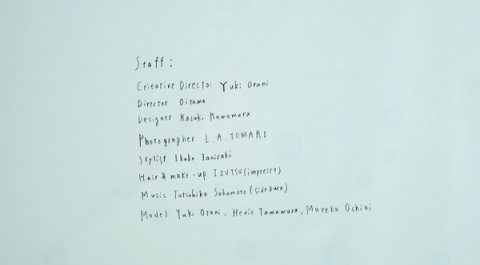 Staff:
Creative Director Yuki Orani
Director Oitama
Designer Kazuki Kamamura
Photographer L.A.TOMARI
Stylist Ikuko Tanizaki
Hair & make-up IZUTSU(impress+)
Music Tatsuhiko Sakamoto(sideburn)
Model Yuki Orani, Hevio Tamamura, Mareka Ochiai